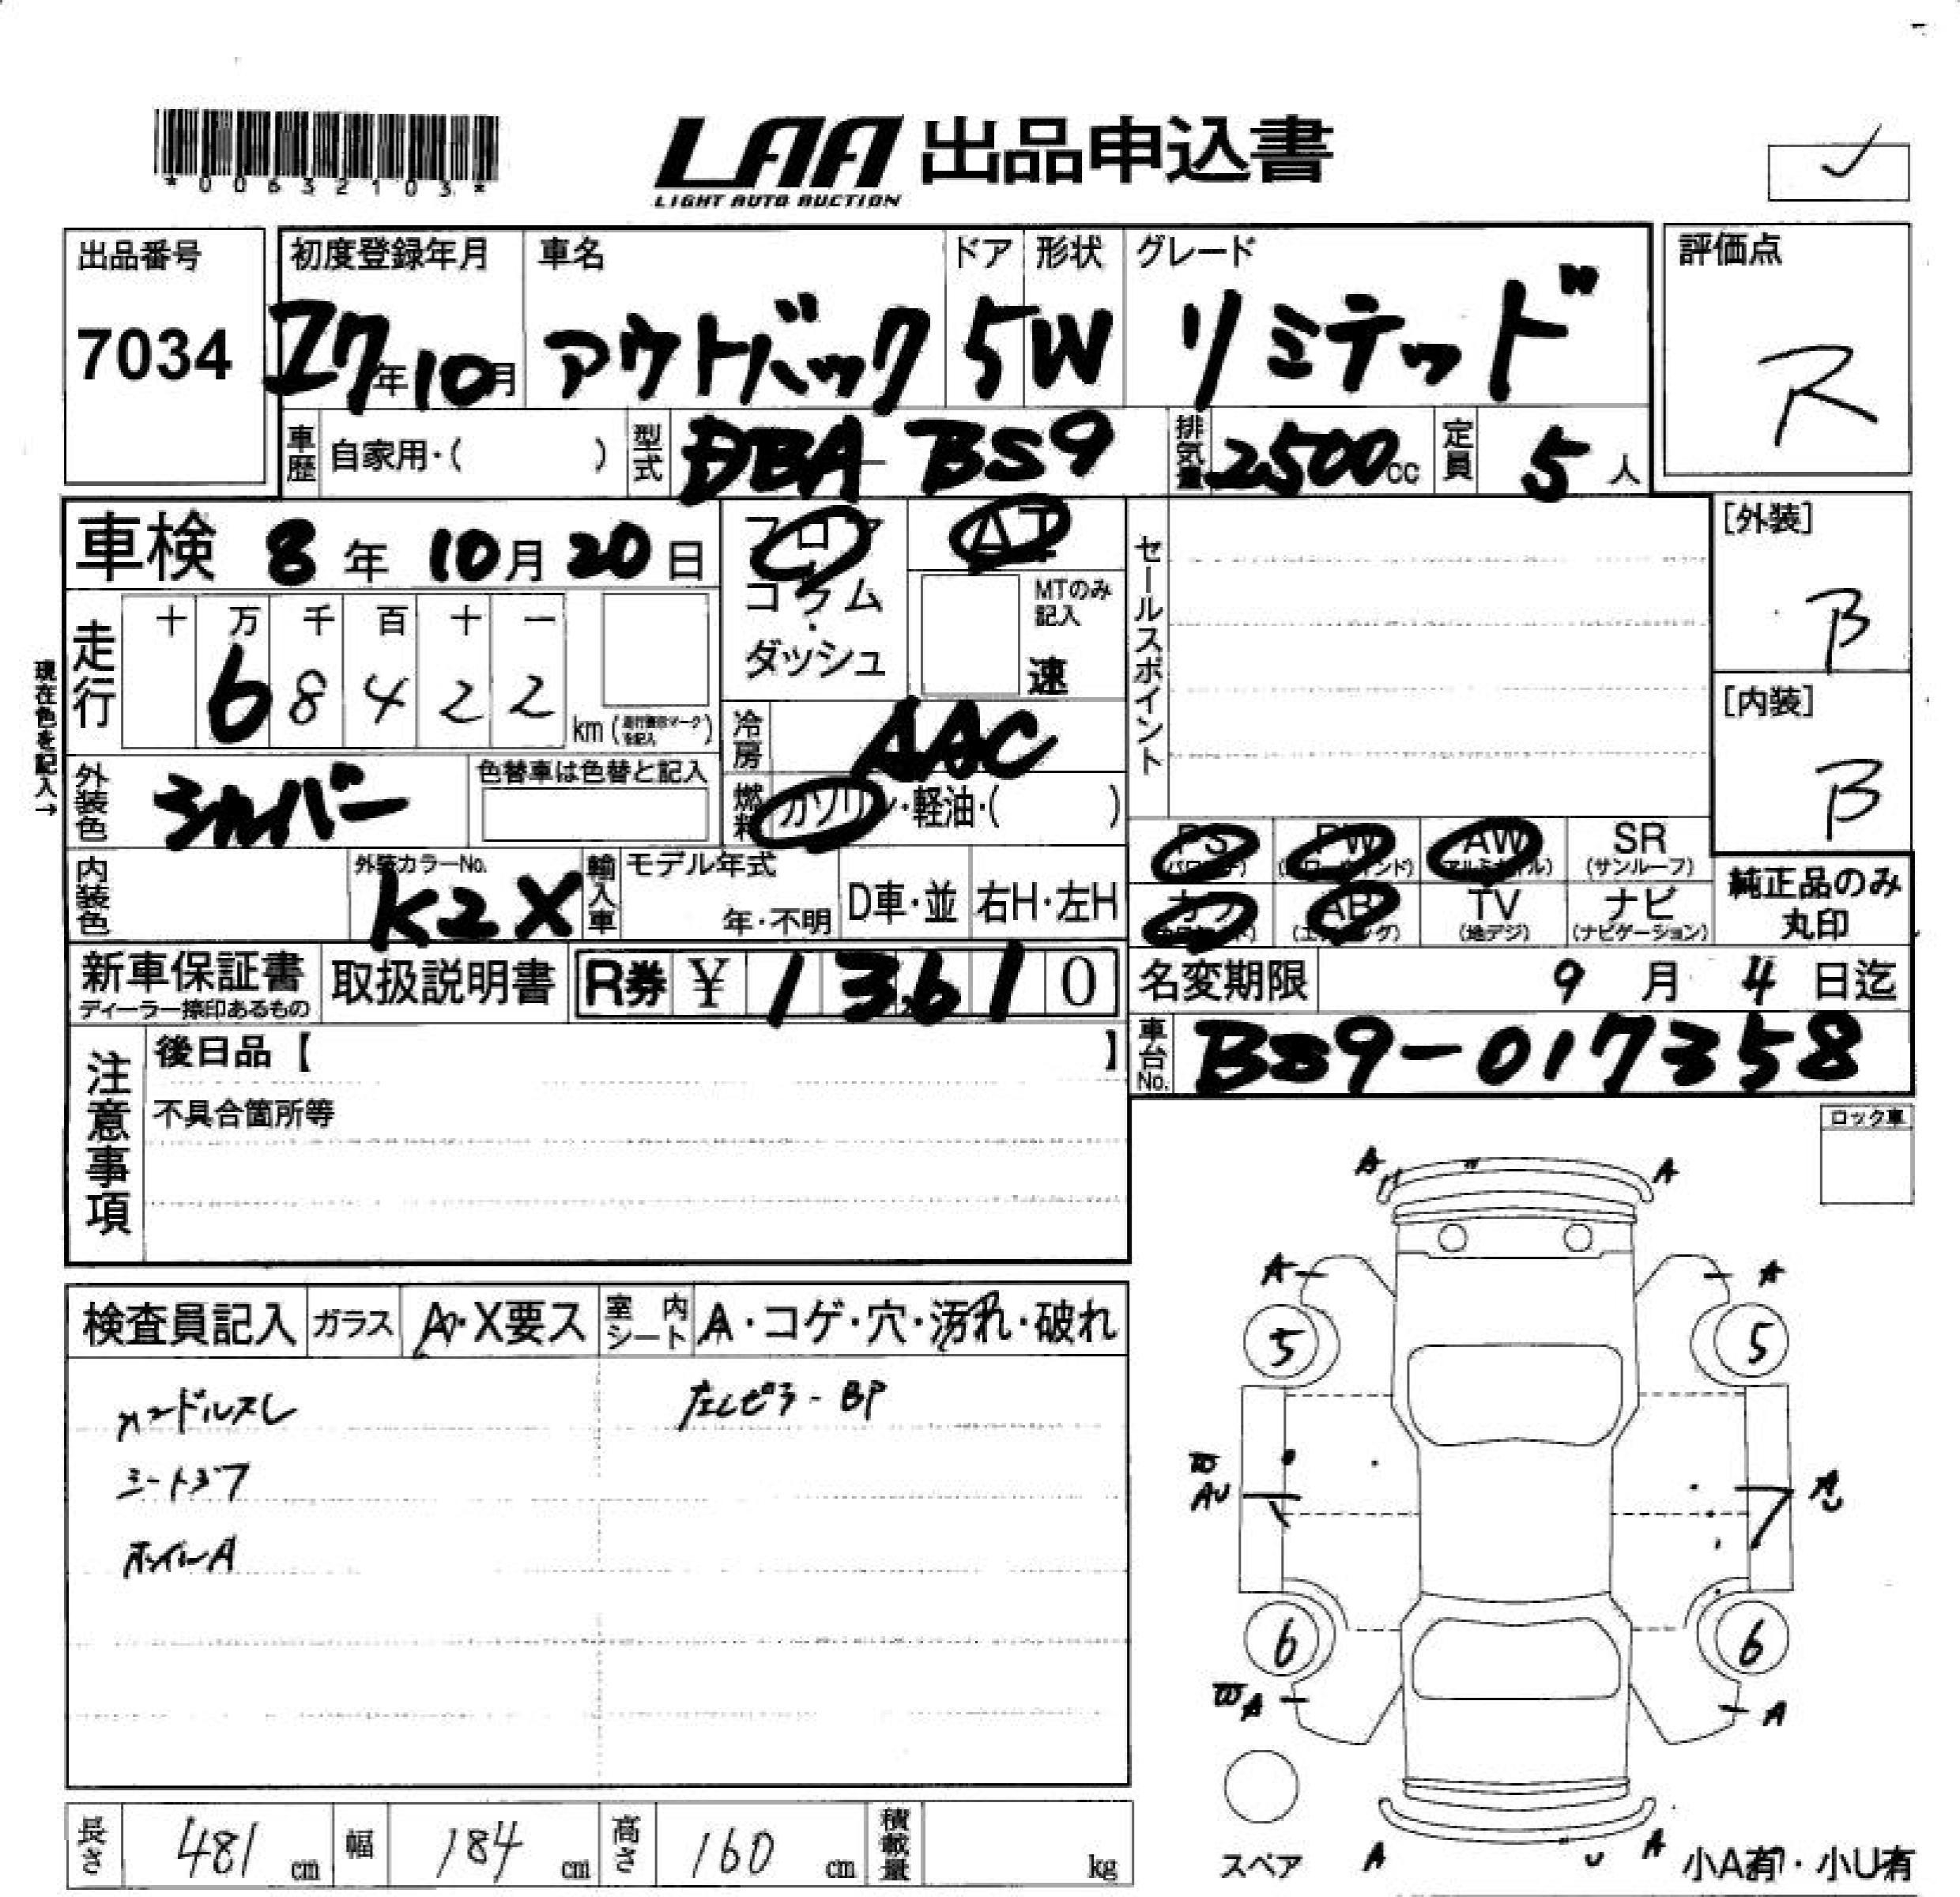 *00632103*
LAA 出品申込書
LIGHT AUTO AUCTION
出品番号 7034
初度登録年月 27年10月
車名 アウトバック
ドア 5
形状 W
グレード リミテッド
評価点 R
車歴 自家用・( )
型式 DBA-BS9
排気量 2500cc
定員 5人
車検 8年10月20日
フロア
コラム
・
ダッシュ
AT
MTのみ記入
速
セールスポイント
[外装] B
[内装] B
現在色を記入→
走行 十 万 千 百 十 一
6 8 4 2 2 km (走行機窓マークを記入)
冷房 AAC
外装色 シルバー
色替車は色替と記入
燃料 ガソリン・軽油・( )
内装色
外装カラーNo. K2X
輸入車 モデル年式 年・不明
D車・並
右H・左H
PS (パワステ)
PW (パワーウィンド)
AW (アルミホイル)
SR (サンルーフ)
カワ
AB (エアバッグ)
TV (地デジ)
ナビ (ナビゲーション)
純正品のみ丸印
新車保証書
ディーラー捺印あるもの
取扱説明書
R券 ¥ 13,610
名変期限 9月4日迄
車台No. BS9-017358
注意事項
後日品【 】
不具合箇所等
ロック車
検査員記入
ガラス A・X要ス
室内シート A・コゲ・穴・汚れ・破れ
ハンドルスレ
シート3フ
ホイルA
左Cピラ-BP
A A
A A
5 5
AU
A U
6 6
A A
スペア
A U A
小A有・小U有
長さ 481 cm
幅 184 cm
高さ 160 cm
積載量 kg